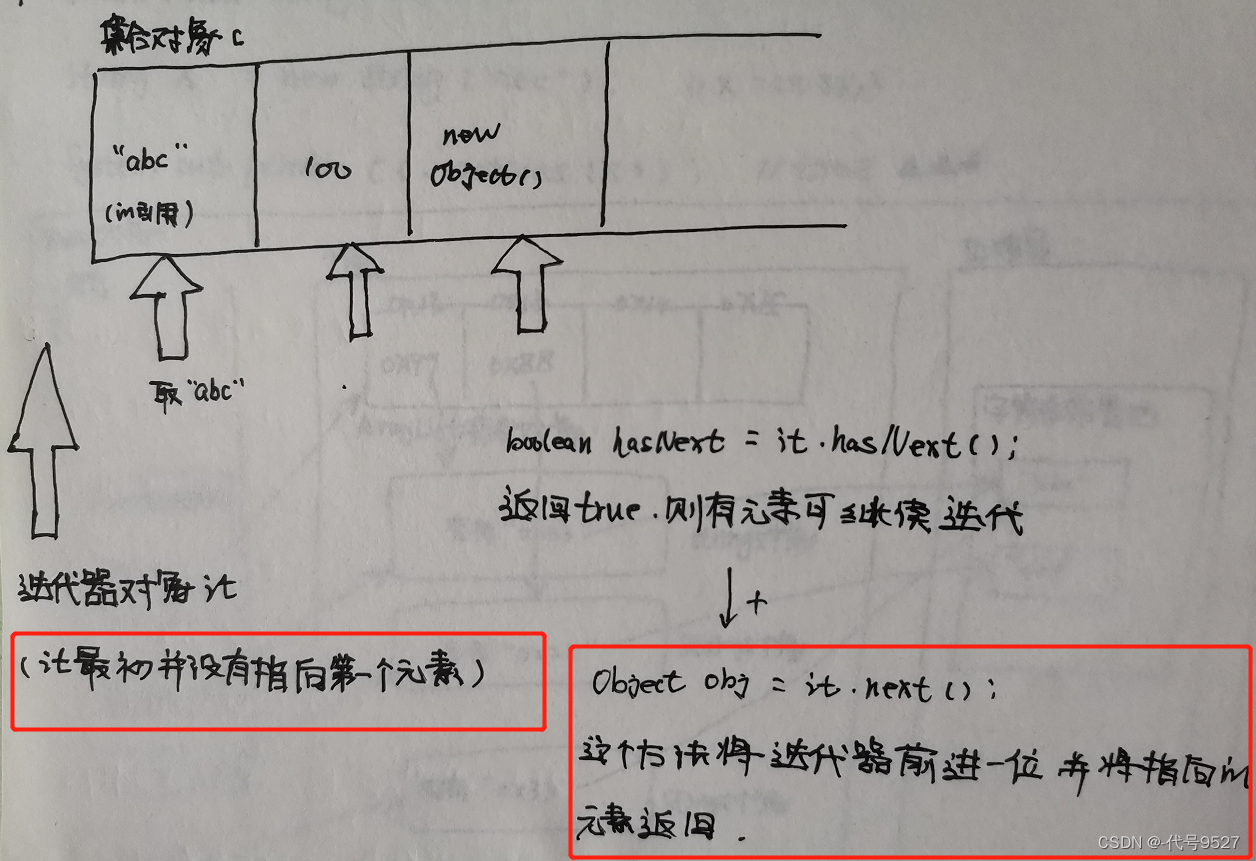 集合对象 c
"abc"
(的引用)
100
new
Object()
取"abc"
boolean hasNext = it.hasNext();
返回true.则有元素可继续迭代
+
迭代器对象 it
(it最初并没有指向第一个元素)
Object obj = it.next();
这个方法将迭代器前进一位 并将指向的
元素返回.
CSDN @-代号9527